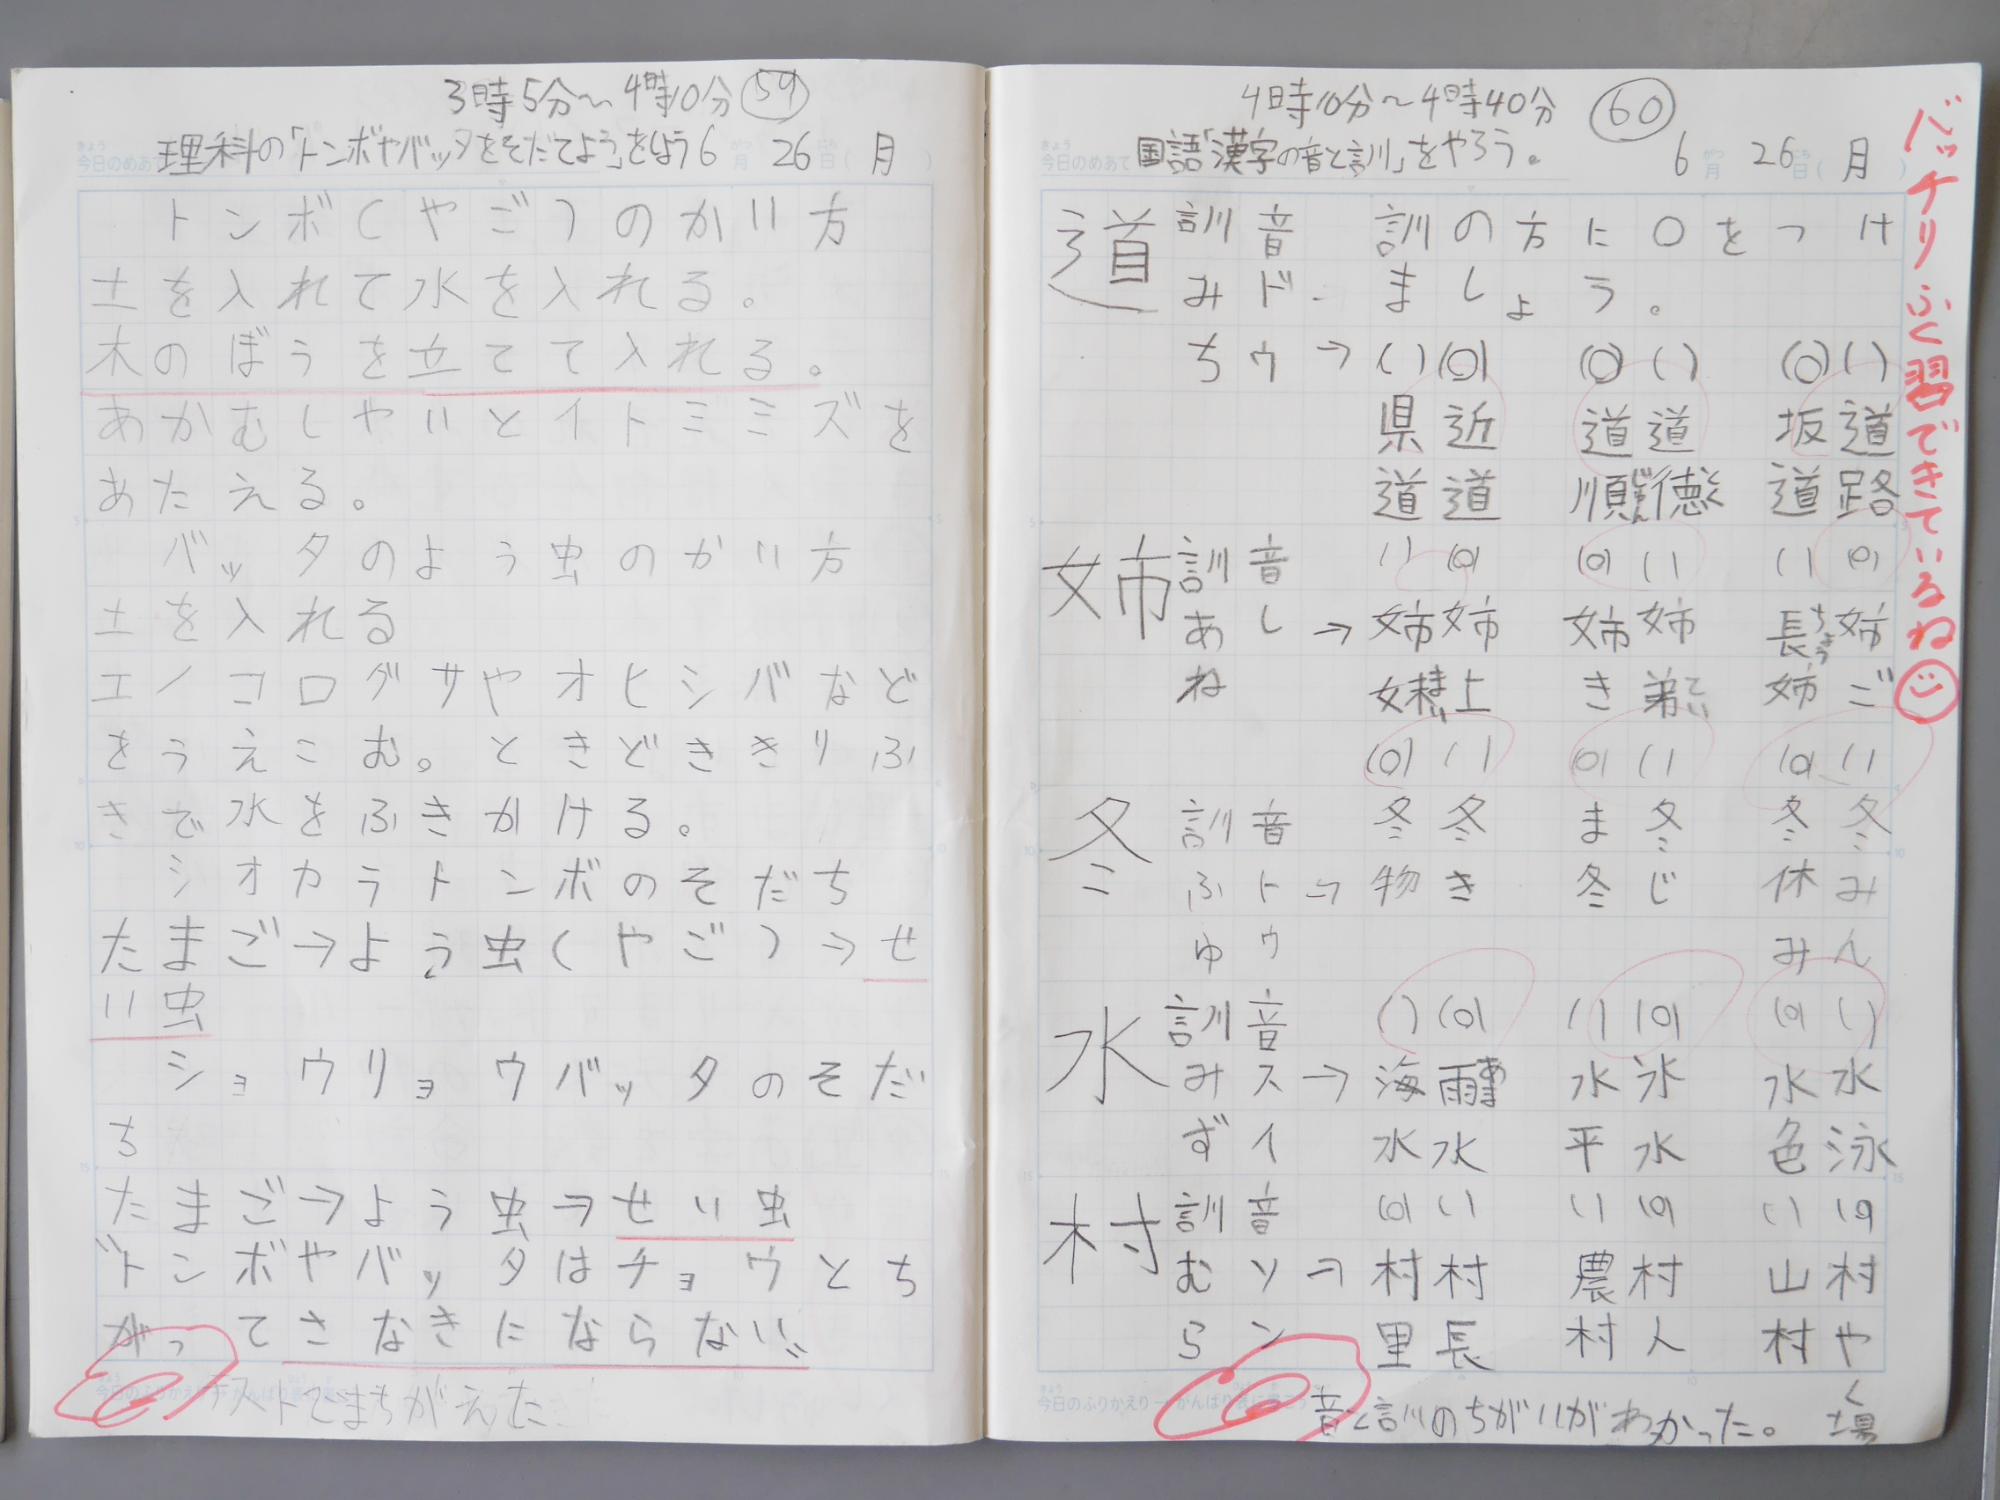 3時5分〜4時10分 59
今日のめあて 理科の「トンボやバッタをそだてよう」をしよう 6月26日(月)
トンボ(やご)のかい方
土を入れて水を入れる。
木のぼうを立てて入れる。
あかむしやいとイトミミズを
あたえる。
バッタのよう虫のかい方
土を入れる
エノコログサやオヒシバなど
をうえこむ。ときどききりふ
きで水をふきかける。
シオカラトンボのそだち
たまご→よう虫(やご)→せ
い虫
ショウリョウバッタのそだ
ち
たまご→よう虫→せい虫
"トンボやバッタはチョウとち
がってさなぎにならない"
テストでまちがえた
4時10分〜4時40分 60
今日のめあて 国語「漢字の音と訓」をやろう。 6月26日(月)
道 訓 音 訓の方に○をつけ
みド ましょう。
ちウ→( )(○) (○)( ) (○)( )
県近 道道 坂道
道道 順じゅん徳とく 道路
姉 訓 音 ( )(○) (○)( ) ( )(○)
あし→姉姉 姉姉 長ちょう姉
ね 妹まい上 き弟てい 姉ご
(○)( ) (○)( ) (○)( )
冬 訓 音 冬冬 ま冬 冬冬
ふト→物き 冬じ 休み
ゆウ みん
水 訓 音 ( )(○) ( )(○) (○)( )
みス→海雨あま 水氷 水水
ずイ 水水 平水 色泳
村 訓 音 (○)( ) ( )(○) ( )(○)
むソ→村村 農村 山村
らン 里長 村人 村や
く
場
音と訓のちがいがわかった。
バッチリふく習できているね